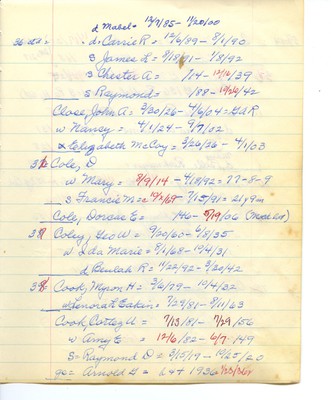 d Mabel = 12/7/85 - 1/28/00
d. Carrie R = 12/6/89 - 8/1/90
S James L = 8/18/91 - 1/8/92
S Chester A = /14 - 12/16/39
S Raymond = /88 - 10/26/42
Close, John A = 3/30/26 - 4/6/04 = GAR
w Nancy = 4/1/24 - 9/7/02
x Elizabeth McCoy = 3/26/26 - 4/1/03
Cole, D
w Mary = 8/9/14 - 4/18/92 = 77-8-9
S Francis M = 7/15/91 = 21y 9m
Cole, Dorcas E = 146 - 5/19/06
Coley, Geo W = 9/20/60 - 6/8/35
w Ida Marie = 8/1/68 - 19431
d Beulah R = 11/22/92 - 3/20/42
Cook, Myron H = 3/6/79 - 10/4/32
w Lenora L Eakin = 7/29/81 - 9/11/63
Cook Cortez U = 7/13/81 - 7/29/56
w Amy E = 12/6/82 - 6/7/49
S = Raymond D = 3/15/17 - 10/25/20
gs = Arnold G = L 47 1936